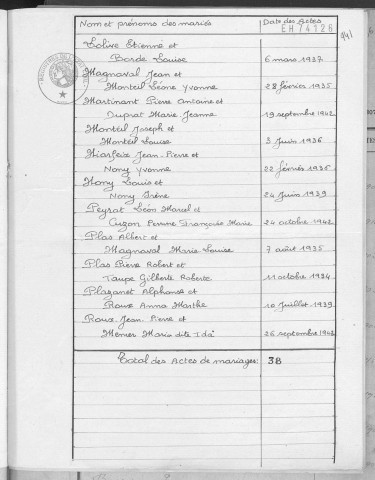 Nom et prénoms des mariés Date des Actes
EH74126
Solive Etienne et
Borde Louise 6 mars 1937
Magnaval Jean et
Monteil Léone Yvonne 28 février 1935
Martinant Pierre Antoine et
Duprat Marie Jeanne 19 septembre 1942
Monteil Joseph et
Monteil Louise 3 Juin 1936
Jean Pierre et
Nony Yvonne 22 février 1936
Nony Louis et
Nony Irène 24 Juin 1939
Peyrat Léon Marcel et
Cuzon Perrine Françoise Marie 24 octobre 1942
Plas Albert et
Magnaval Marie Louise 7 août 1935
Plas Pierre Robert et
Taupe Gilberte Roberte 11 octobre 1934
Plazanet Alphonse et
Roux Anna Marthe 10 Juillet 1939
Roux Jean Pierre et
Memer Maria dite Ida 26 septembre 1942
Total des Actes de mariages: 38